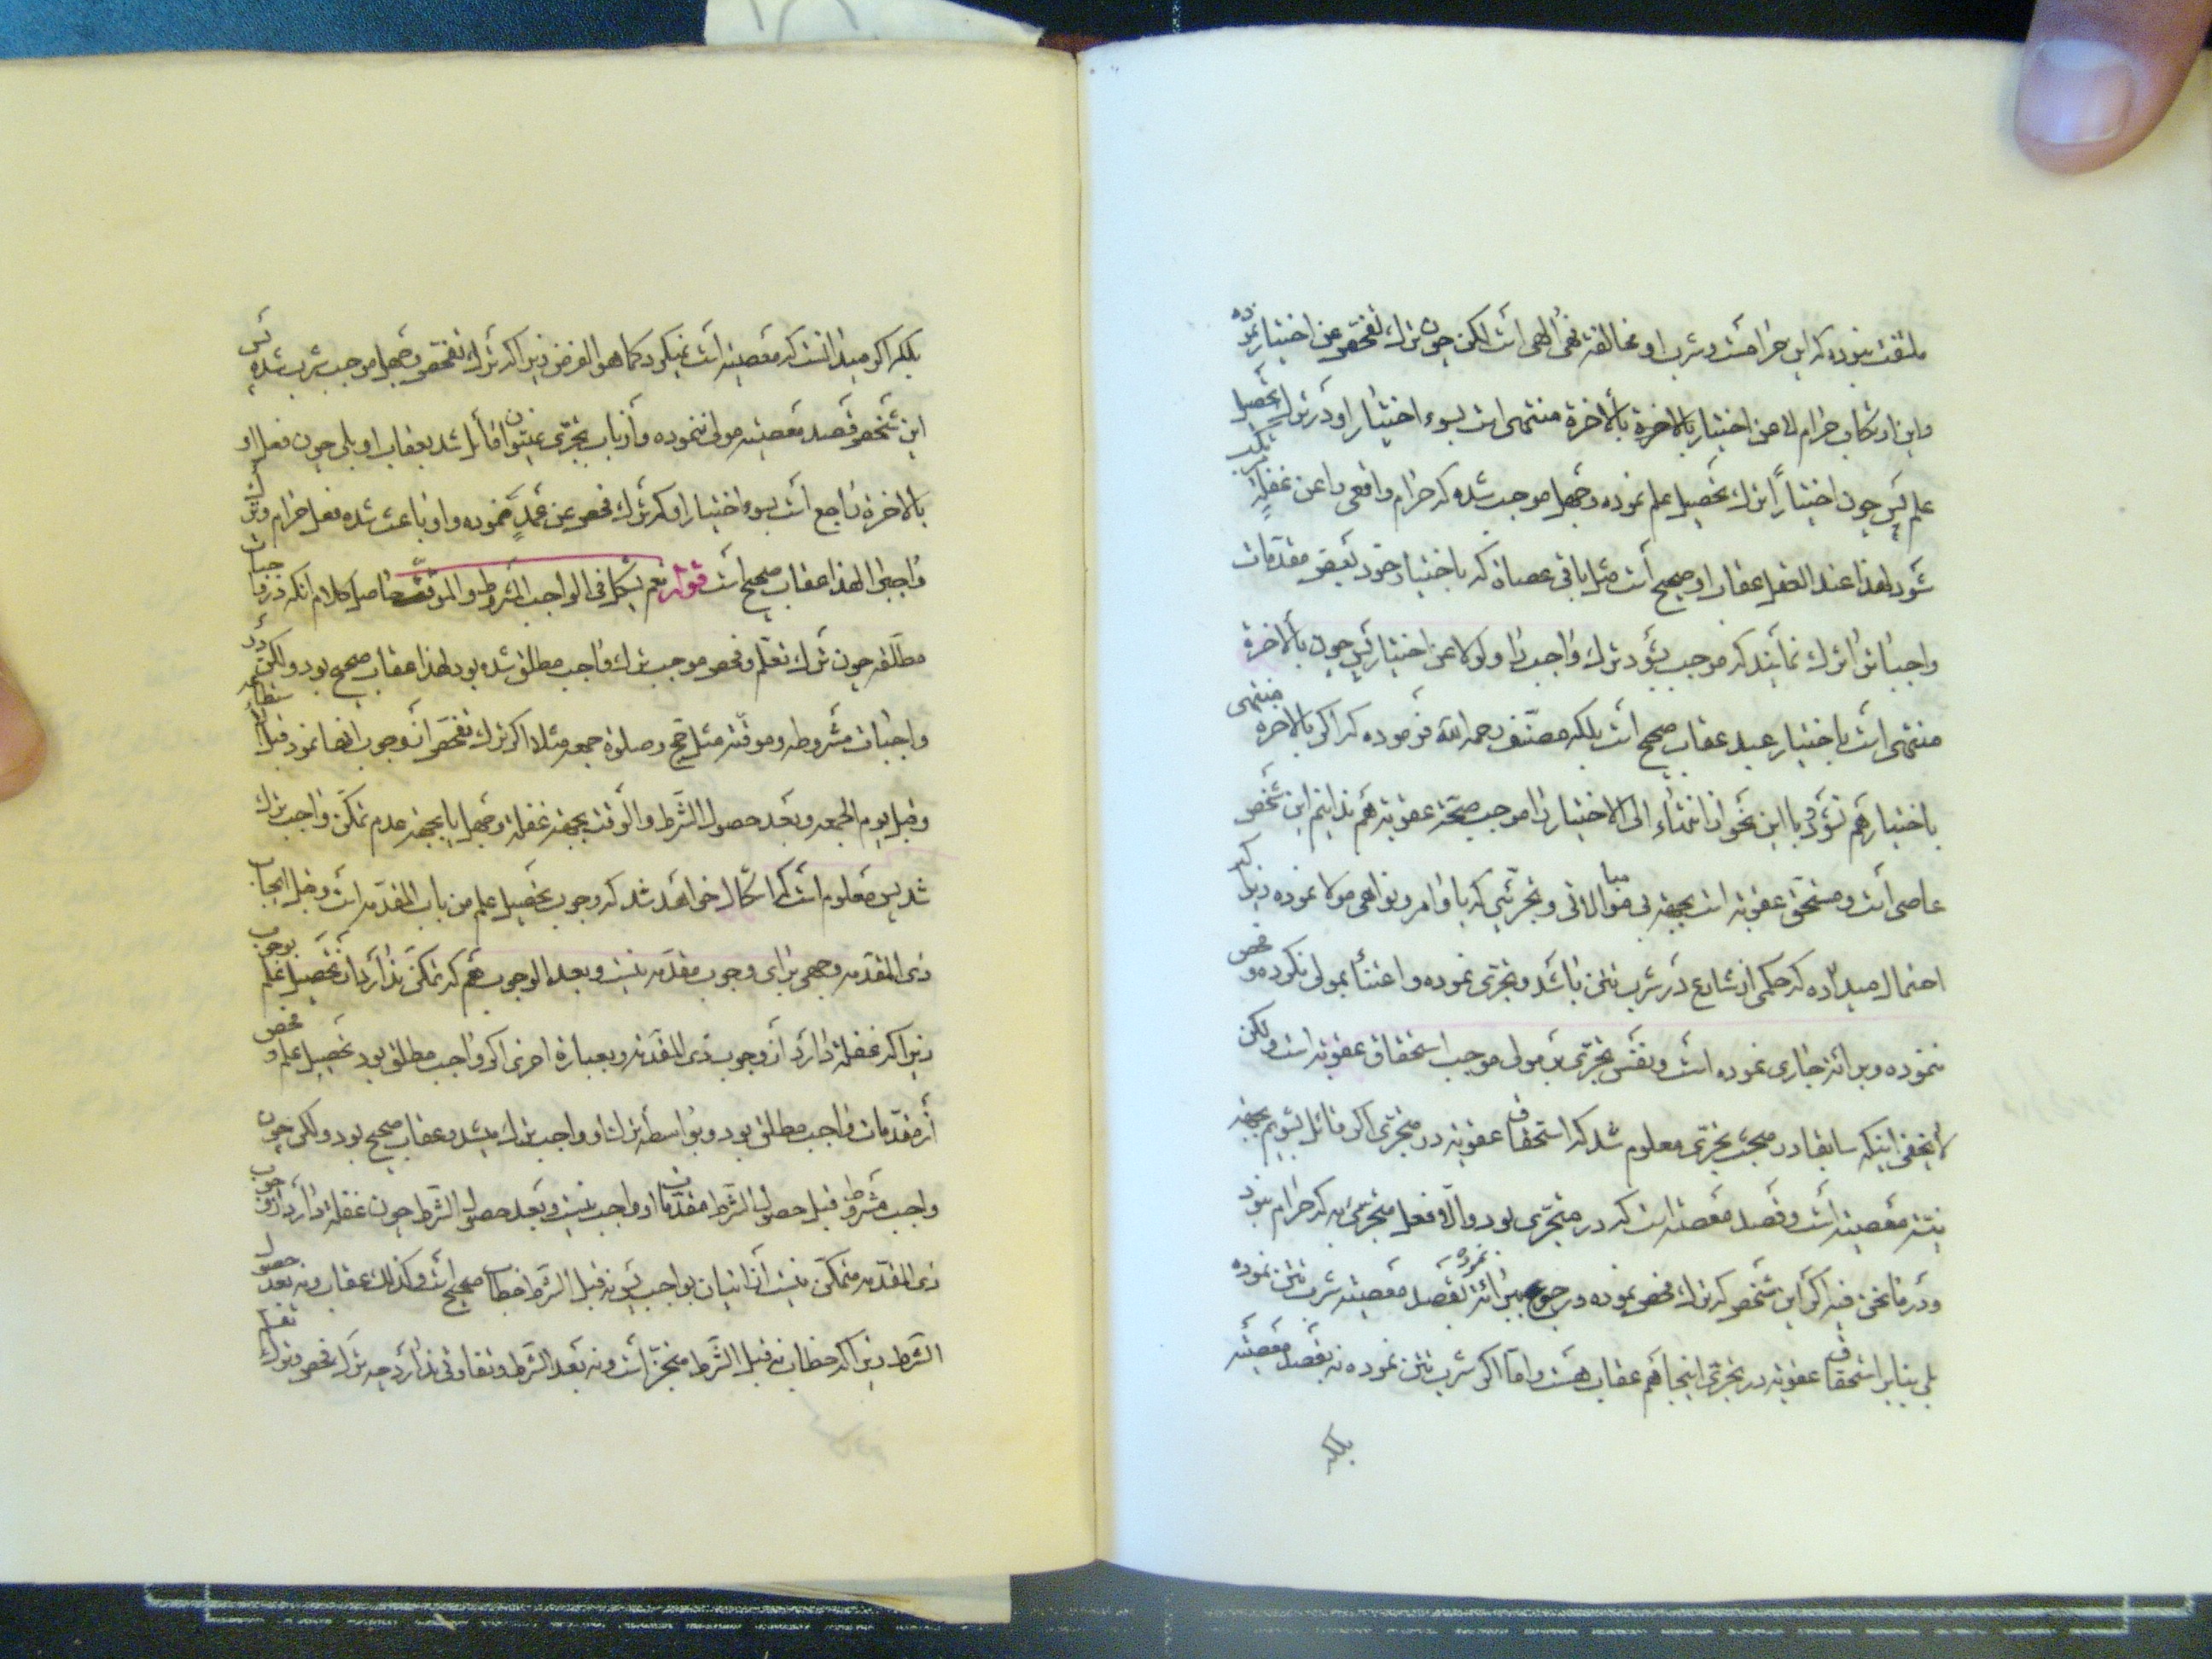 ملتفت نبوده که این حرامست و شرب او مخالفة نهی الهی است لکن چون ترك تفحص عن اختیار نموده
و این ارتکاب حرام لا عن اختیار بالاخرة بالاخرة منتهی است بسوء اختیار او در ترك تحصیل
علم پس چون اختیاراً ترك تحصیل علم نموده و جهل موجب شده که حرام واقعی را عن غفلة مرتکب
شود لهذا عند العقل عقاب او صحیح است مثل باقی عصاة که باختیار خود بعض مقدمات
واجبات را ترك نمایند که موجب بشود ترك واجب را ولو لا عن اختیار پس چون بالاخرة
منتهی است باختیار عبد عقاب صحیح است بلکه مصنف رحمه الله فرموده که اگر بالاخره منتهی
باختیار هم نشود و با این نحو از انتهاء الی الاختیار را موجب صحة عقوبة هم ندانیم این شخص
عاصی است و مستحق عقوبة است بجهة بی مبالاتی و تجرئی که باوامر و نواهی مولا نموده زیرا که
احتمال میداده که حکمی از شارع در شرب تتن باشد و تجری نموده و اعتنا بمولی نکرده و فحص
ننموده و برائة جاری نموده است و نفس تجری بر مولی موجب استحقاق عقوبة است ولکن
لا یخفی اینکه سابقا در مبحث تجری معلوم شد که استحقاق عقوبة در متجری اگر قائل بشویم بجهة
نیة معصیة است و قصد معصیة است که در متجری بود والا فعل متجری به که حرام نبود
و در ما نحن فیه اگر این شخص که ترك فحص نموده و رجوع ببرائة نموده بقصد معصیة شرب تتن نموده
بلی بنابر استحقاق عقوبة در تجری اینجا هم عقاب هست و اما اگر شرب تتن نموده نه بقصد معصیة
بلکه
بلکه اگر میدانست که معصیة است نمیکرد کما هو الفرض زیرا که ترك تفحص و جهل موجب شرب شده پس
این شخص قصد معصیة مولی ننموده و از باب تجری نمیتوان قائل شد بعقاب او بلی چون فعل او
بالاخرة راجع است بسوء اختیار او که ترك فحص عن عمد نموده و او باعث شده فعل حرام و ترك
واجب را لهذا عقاب صحیح است قوله نعم یشکل فی الواجب المشروط والموقت حاصل کلام انکه در واجبات
مطلقه چون ترك تعلم و فحص موجب ترك واجب مطلق شده بود لهذا عقاب صحیح بود ولکن در
واجبات مشروطه و موقته مثل حج و صلوة جمعه مثلا اگر ترك تفحص از وجوب انها نمود قبل استطاعة
و قبل یوم الجمعه و بعد حصول الشرط و الوقت بجهة غفلة و جهل یا بجهة عدم تمکن واجب ترك
شد پس معلوم است که اشکال خواهد شد که وجوب تحصیل علم من باب المقدمه است و قبل ایجاب
ذی المقدمه وجهی برای وجوب مقدمه نیست و بعد الوجوب هم که تمکن ندارد از تحصیل علم بوجوب
زیرا که غفلة دارد از وجوب ذی المقدمه و بعبارة اخری اگر واجب مطلق بود تحصیل علم و فحص
از مقدمات واجب مطلق بود و بواسطه ترك او واجب ترك میشد و عقاب صحیح بود ولکن چون
واجب مشروط قبل حصول الشرط مقدمات او واجب نیست و بعد حصول الشرط چون غفلة دارد از وجوب
ذی المقدمه متمکن نیست از اتیان بواجب پس نه قبل الشرط خطاب صحیح است و کذلك عقاب و نه بعد حصول
الشرط زیرا که خطاب نه قبل الشرط منجز است و نه بعد الشرط و تفاوتی ندارد چه ترك فحص و ترك تعلم